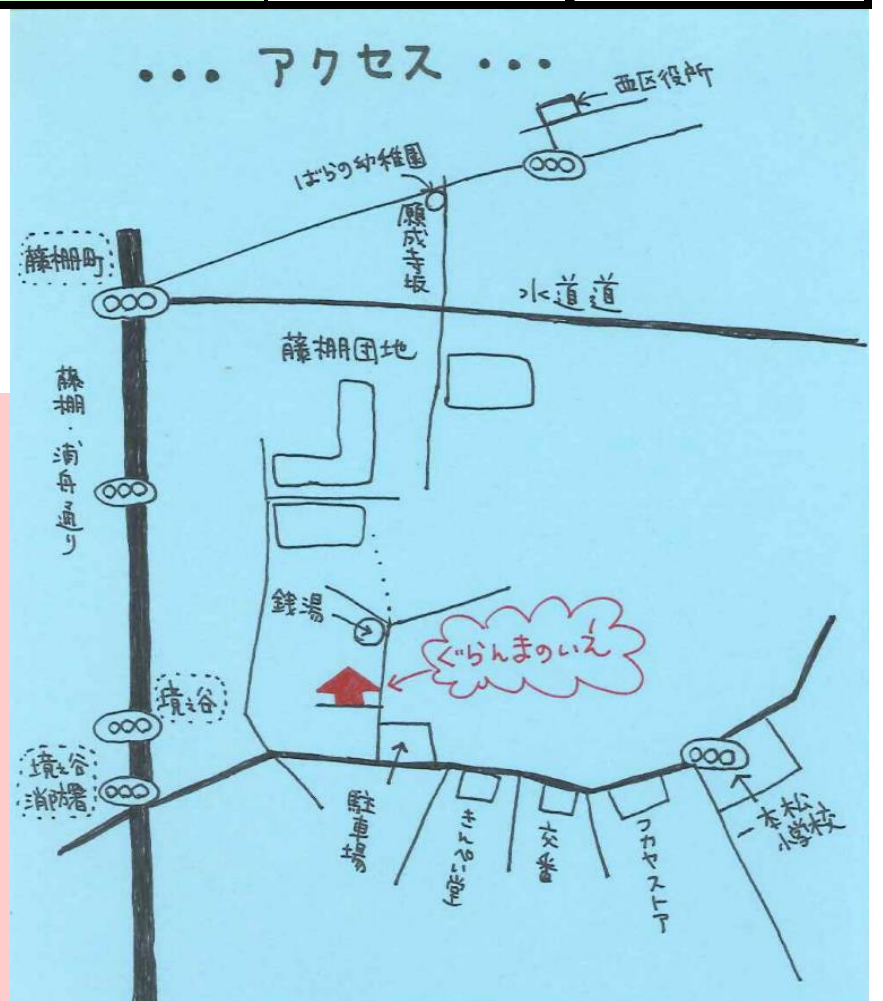 ••• アクセス •••
西区役所
ばらの幼稚園
願成寺坂
藤棚町
水道道
藤棚団地
藤棚・浦舟通り
銭湯
ぐらんまのいえ
境之谷
境之谷
消防署
駐車場
きんぺい堂
交番
フカヤストア
一本松
小学校